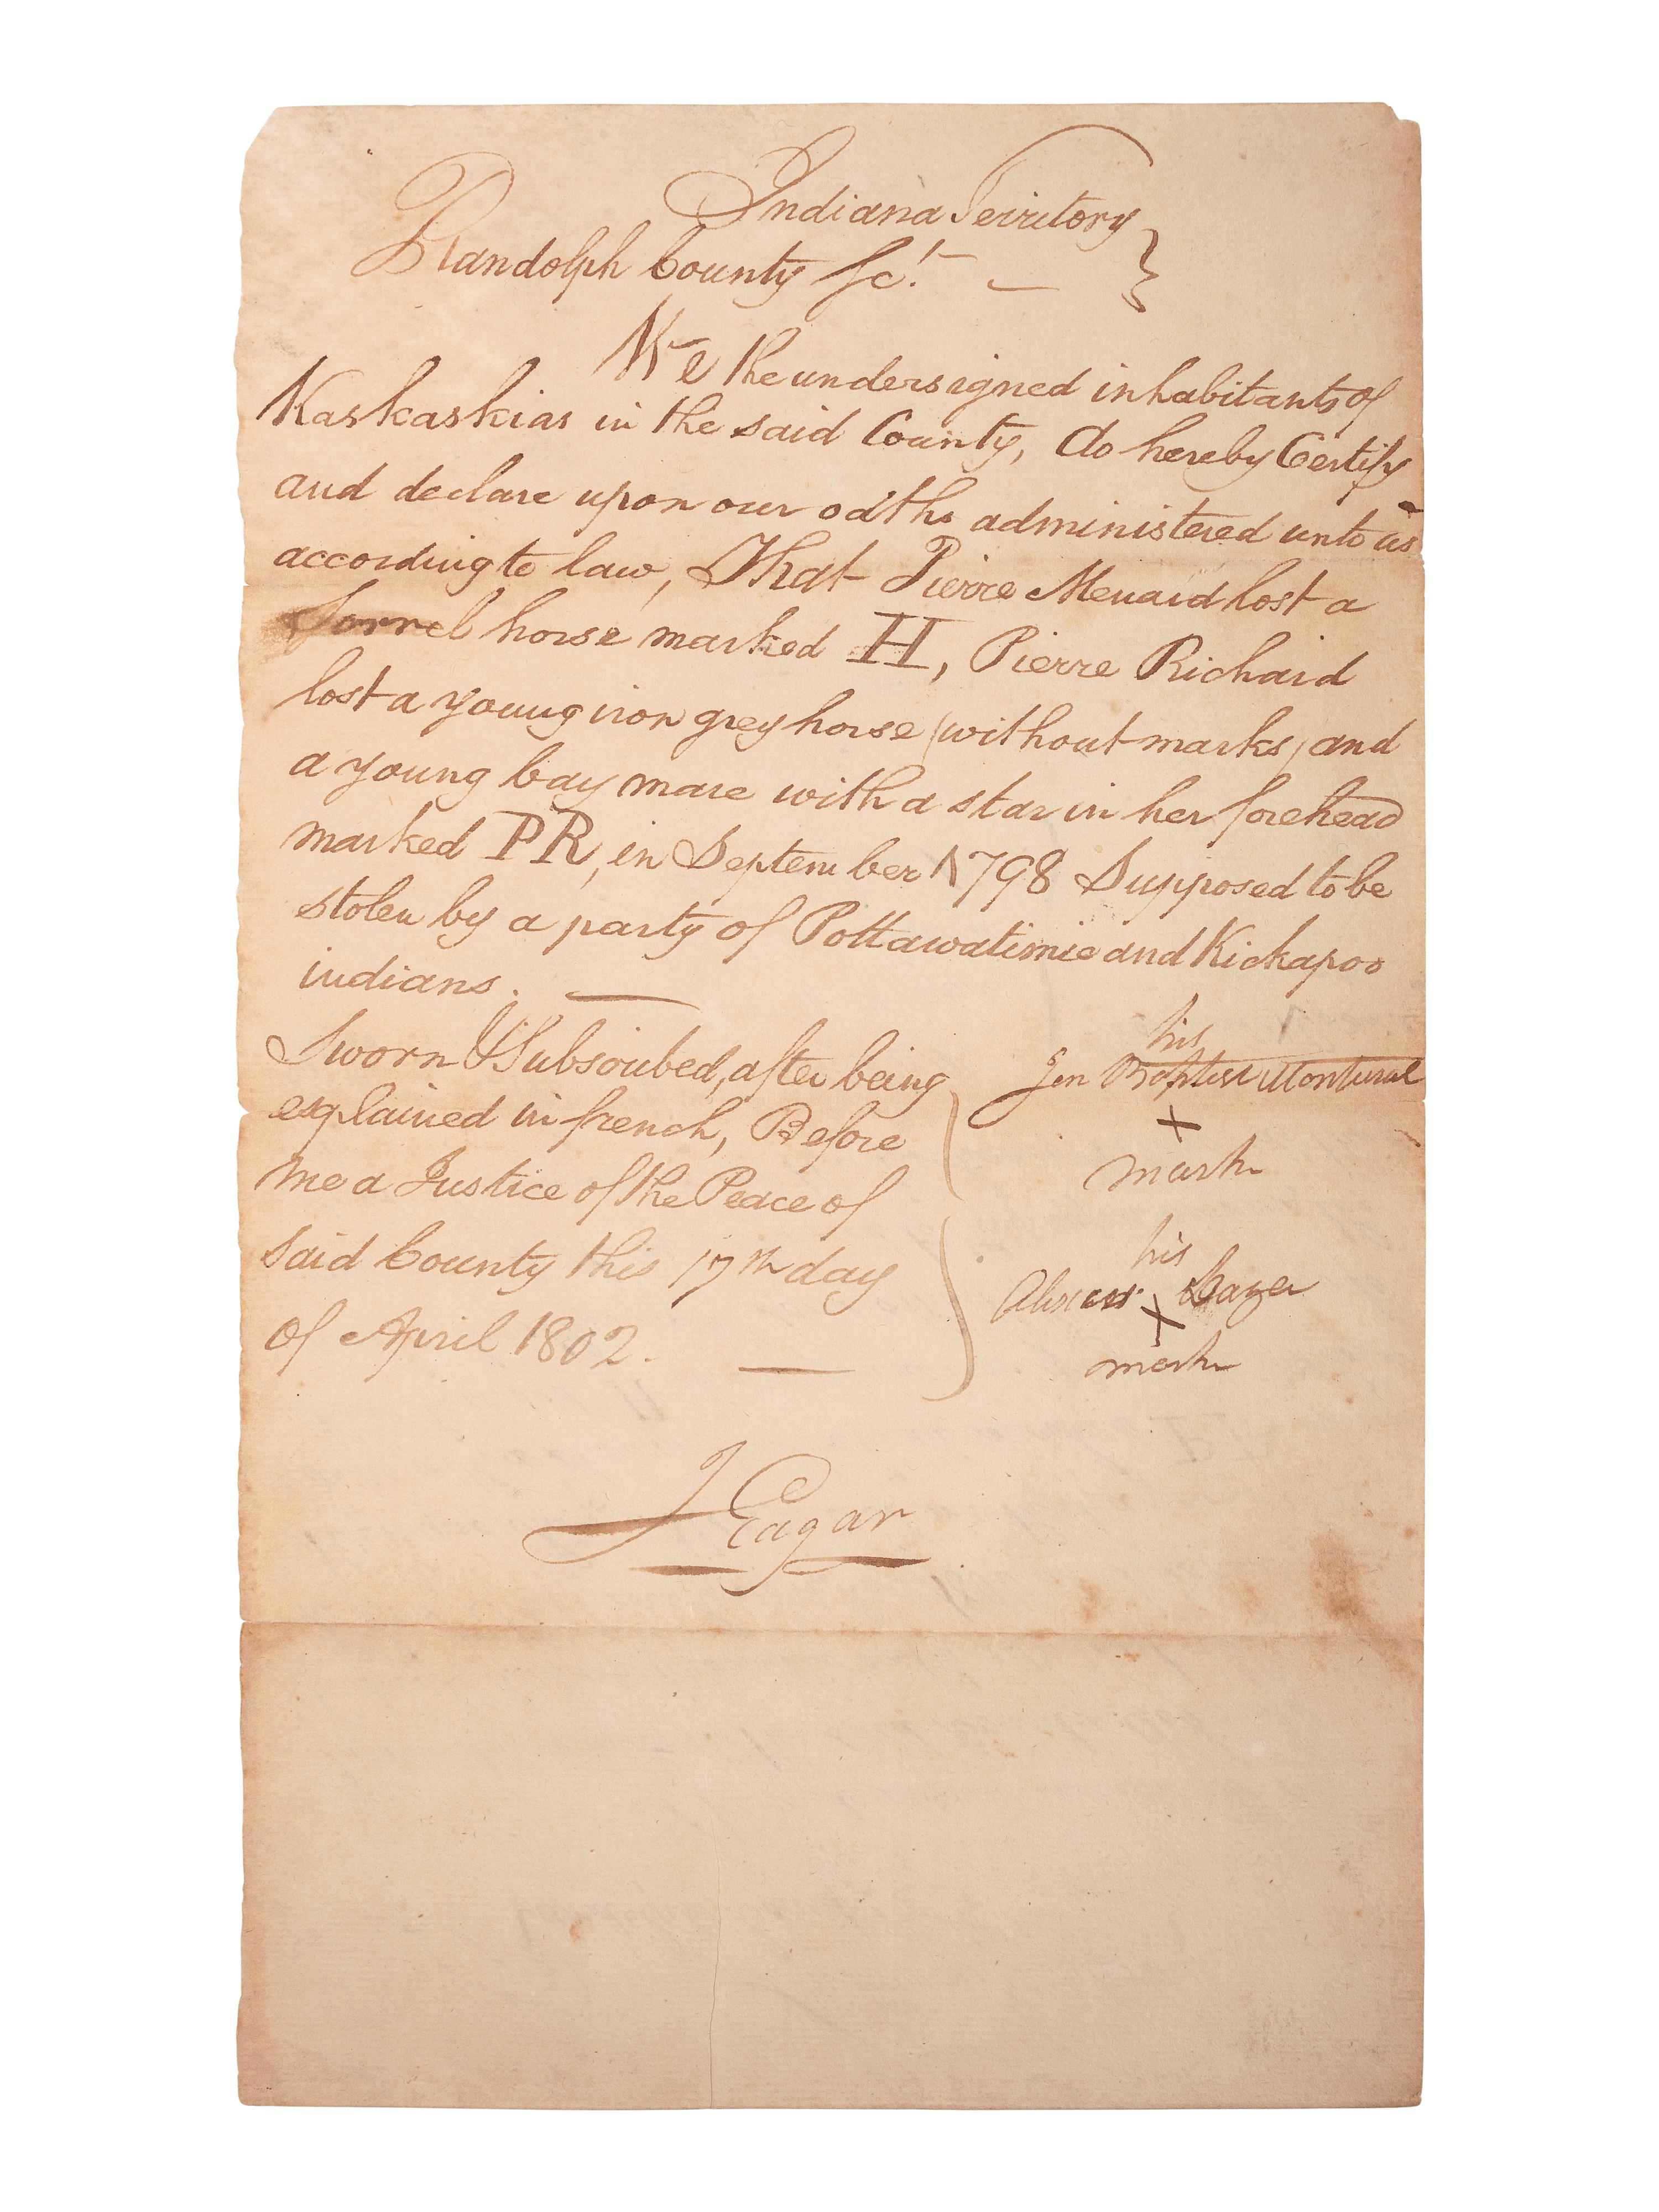 Indiana Territory
Randolph County Sct. —
We the undersigned inhabitants of
Kaskaskias in the said County, do hereby Certify
and declare upon our oaths administered unto us
according to law, That Pierre Menard lost a
Sorrel horse marked H, Pierre Richard
lost a young iron grey horse (without marks) and
a young bay mare with a star in her forehead
marked PR, in September 1798 Supposed to be
stolen by a party of Pottawatimie and Kickapoo
indians. —
Sworn & Subscribed, after being
explained in french, Before
me a Justice of the Peace of
said County this 17th day
of April 1802. —
his
Jen Baptist
X
mark
his
X
mark
J Eagar